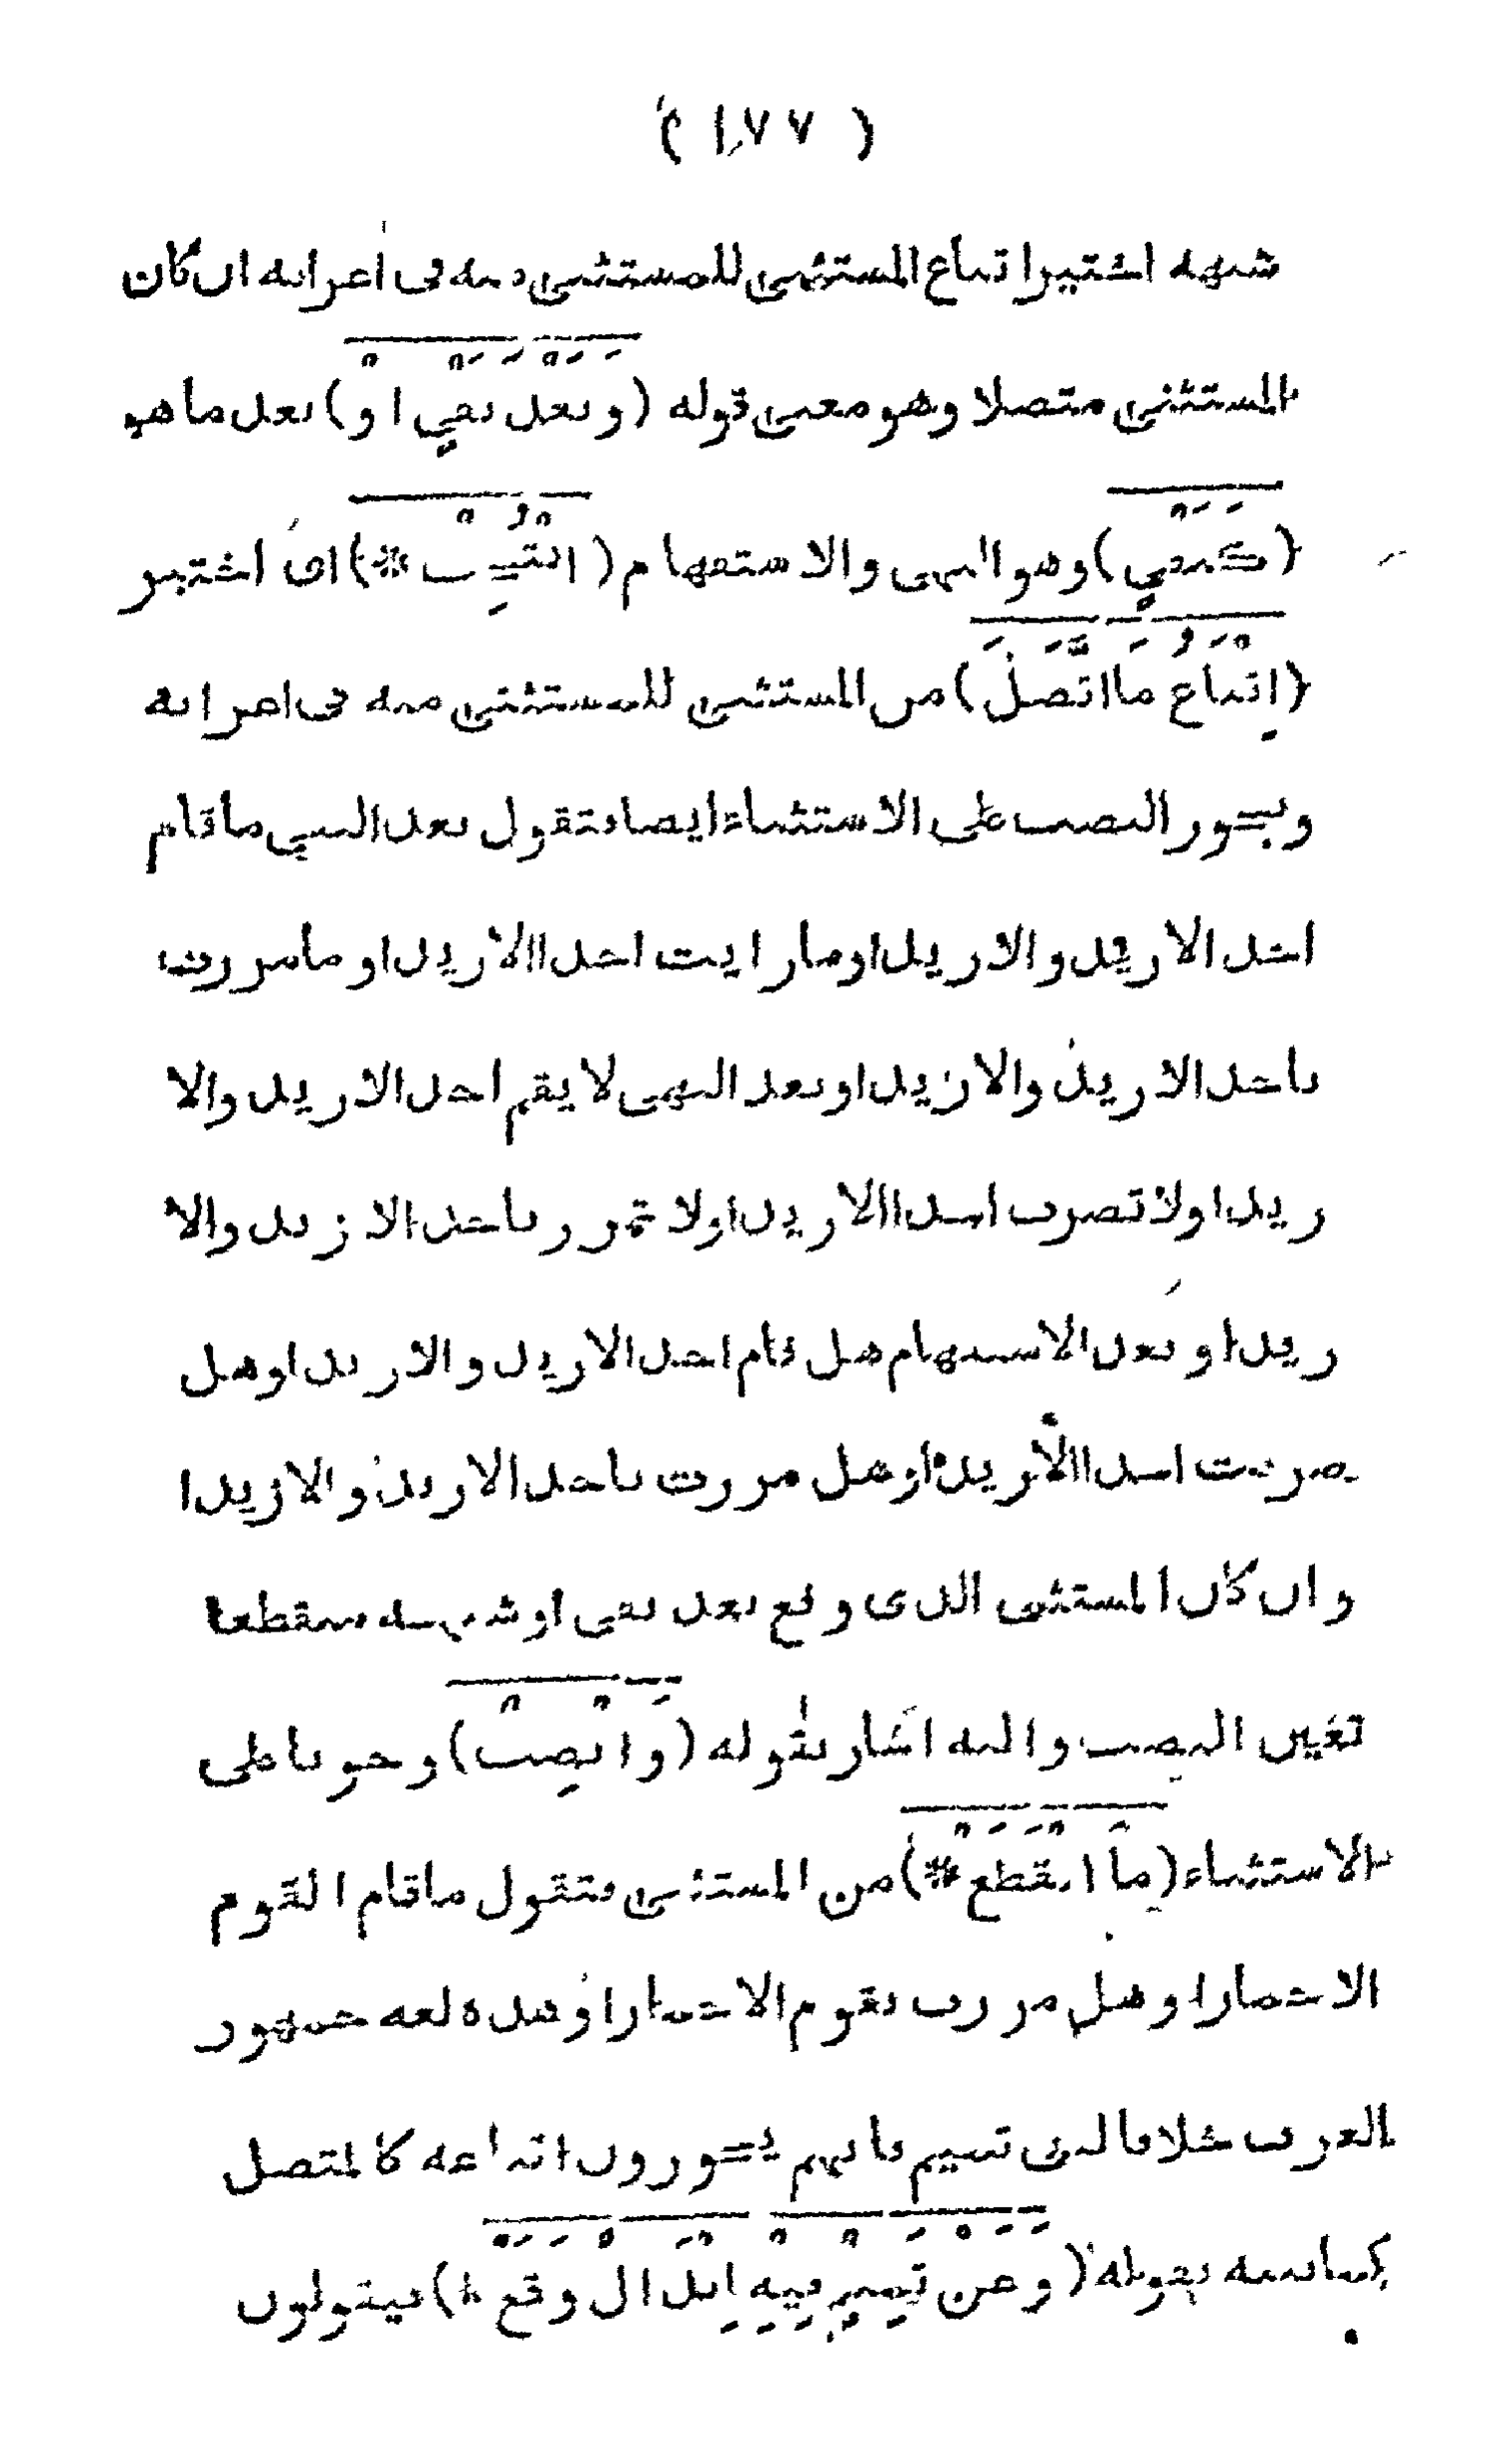 ( ١٧٧ )
شبهه اختير اتباع المستثنى للمستثنى منه فى اعرابه ان كان
المستثنى متصلا وهو معنى قوله (وَبَعْدَ نَفْيٍ اَوْ) بعد ما هو
(كَنَفْيٍ) وهو النهى والاستفهام (انْتُخِبْ *) اى اختير
(اِتْبَاعُ مَا اتَّصَلَ) من المستثنى للمستثنى منه فى اعرابه
ويجوز النصب على الاستثناء ايضا فتقول بعد النفي ما قام
احد الا زيد والا زيدا وما رايت احدا الا زيدا وما مررت
باحد الا زيد والا زيدا وبعد النهى لا يقم احد الا زيد والا
زيدا ولا تضرب احدا الا زيدا ولا تمرر باحد الا زيد والا
زيدا وبعد الاستفهام هل قام احد الا زيد والا زيدا وهل
ضربت احدا الا زيدا وهل مررت باحد الا زيد والا زيدا
وان كان المستثنى الذى وقع بعد نفى او شبهه منقطعا
تعين النصب واليه اشار بقوله (وَانْصِبْ) وجوبا على
الاستثناء (مَا انْقَطَعْ *) من المستثنى فتقول ما قام القوم
الا حمارا وهل مررت بقوم الا حمارا وهذه لغة جمهور
العرب خلافا لبنى تميم فانهم يجوزون اتباعه كالمتصل
كما نبه بقوله (وَعَنْ تَمِيمٍ فِيهِ اِبْدَالٌ وَقَعْ *) فيقولون